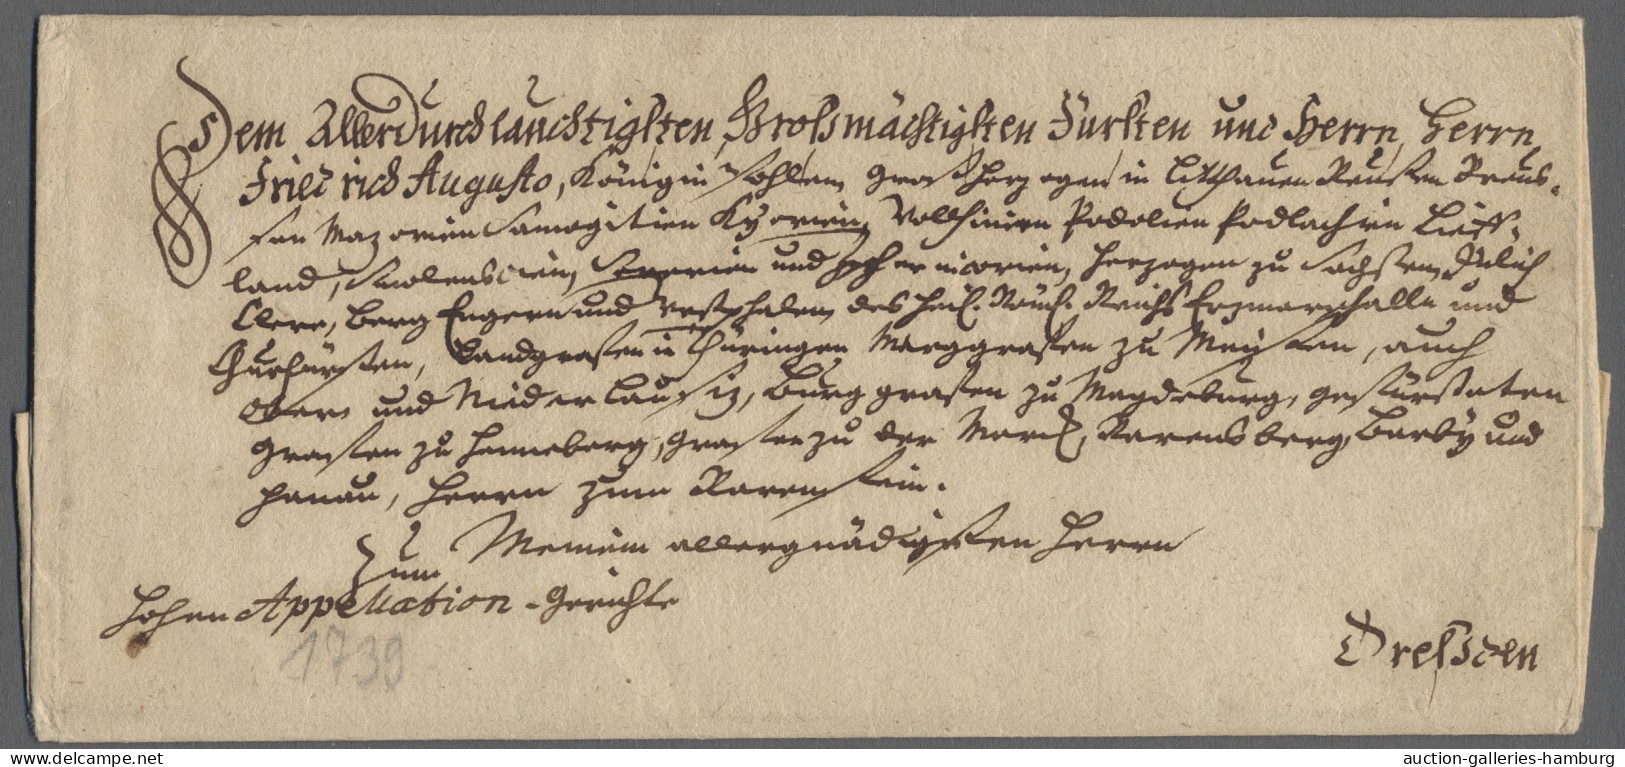 Dem Allerdurchlauchtigsten, Großmächtigsten Fürsten und Herrn, Herrn,
Friedrich Augusto, König in Pohlen, Groß Herzogen in Litthauen Reußen Preus-
sen Mazovien Samogitien Kyovien, Vollhinien Podolien Podlachien Lieff-
land, Smolenscien, Severien und Zschernicovien, Herzogen zu Sachßen, Jülich
Cleve, Berg Engern und Westphalen, des Heil. Röm. Reichs Erzmarschalle und
Churfürsten, Landgrafen in Thüringen Marggrafen zu Meißen, auch
Ober und Niederlausiz, Burggrafen zu Magdeburg, Gefürsteten
Grafen zu Henneberg, Grafen zu der Marck, Ravensberg, Barby und
Hanau, Herrn zum Ravenstein.
Meinem allergnädigsten Herrn
Zum
Hohen Appellation-Gerichte
1739
Dreßden
auction-galleries-hamburg
© bidStart.com